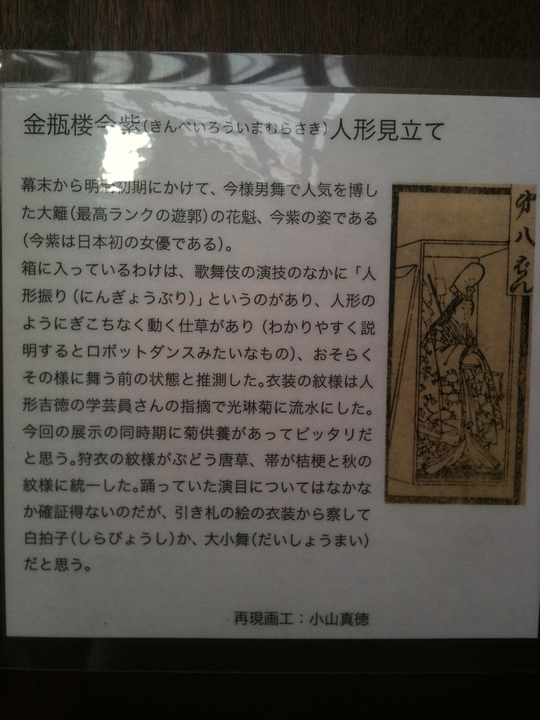 金瓶楼今紫(きんぺいろういまむらさき)人形見立て
幕末から明治初期にかけて、今様男舞で人気を博し
た大籬(最高ランクの遊郭)の花魁、今紫の姿である
(今紫は日本初の女優である)。
箱に入っているわけは、歌舞伎の演技のなかに「人
形振り(にんぎょうぶり)」というのがあり、人形の
ようにぎこちなく動く仕草があり(わかりやすく説
明するとロボットダンスみたいなもの)、おそらく
その様に舞う前の状態と推測した。衣装の紋様は人
形吉徳の学芸員さんの指摘で光琳菊に流水にした。
今回の展示の同時期に菊供養があってピッタリだ
と思う。狩衣の紋様がぶどう唐草、帯が桔梗と秋の
紋様に統一した。踊っていた演目についてはなかな
か確証得ないのだが、引き札の絵の衣装から察して
白拍子(しらびょうし)か、大小舞(だいしょうまい)
だと思う。
再現画工：小山真徳